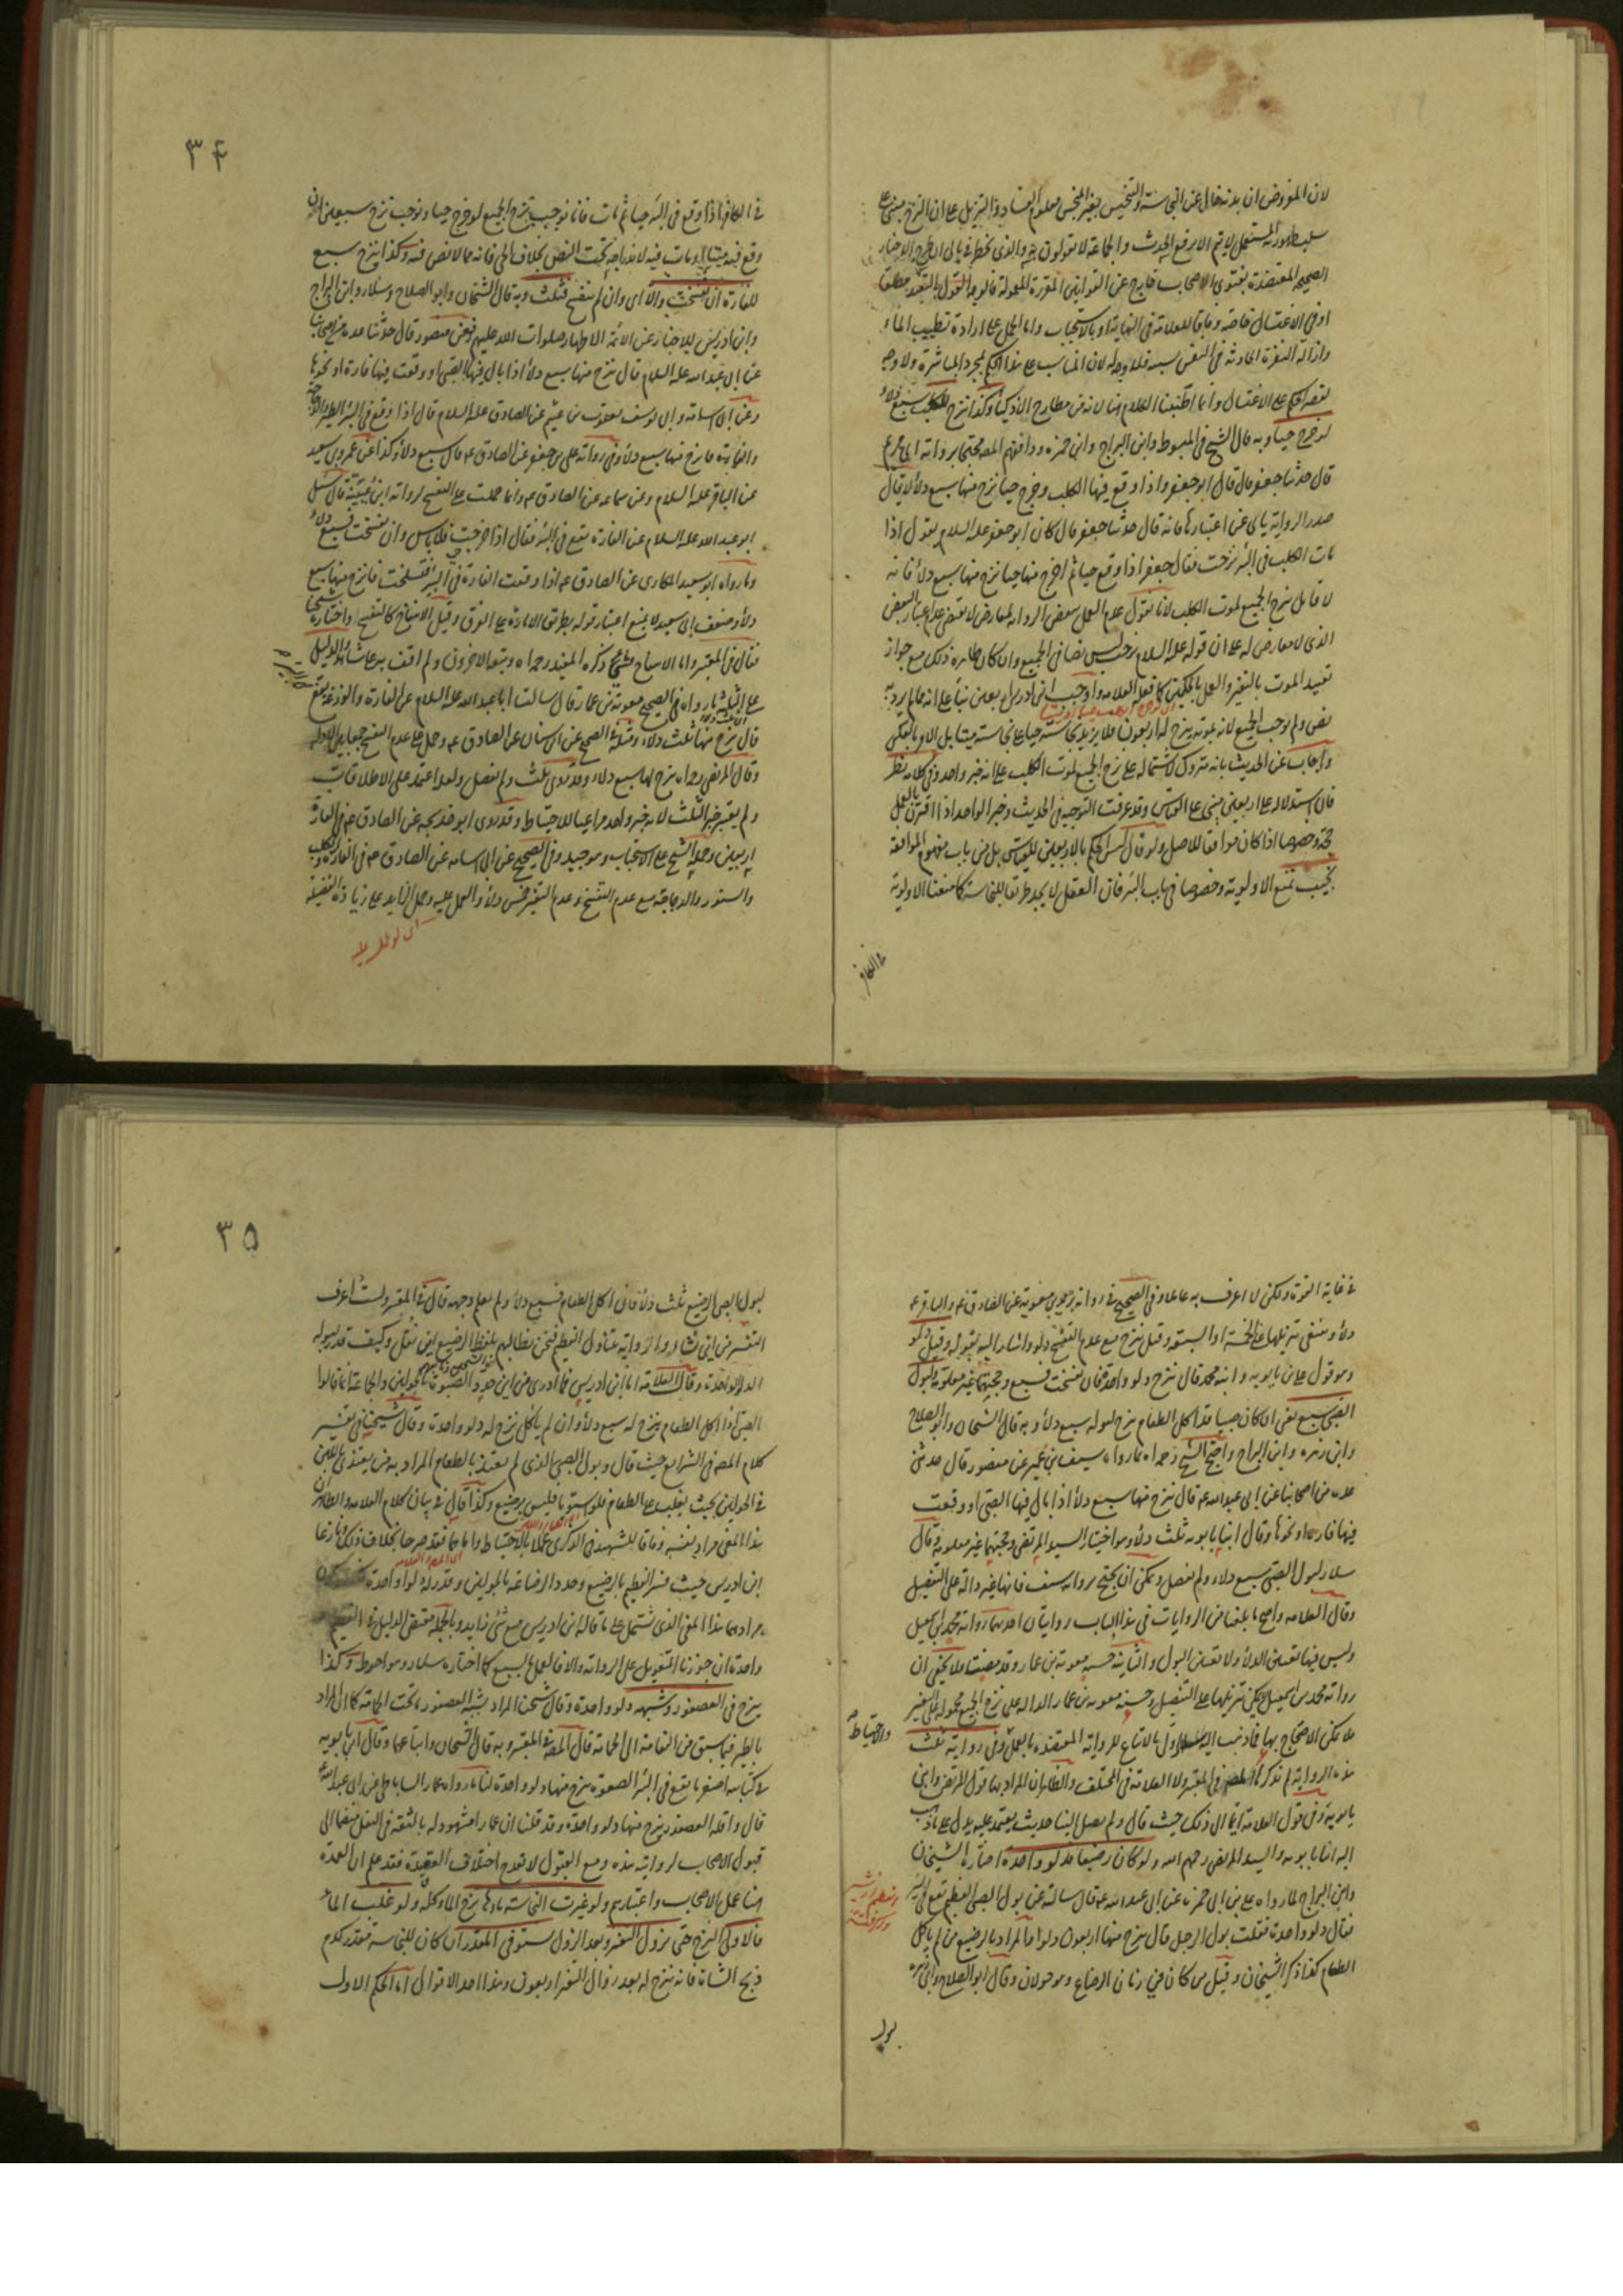 لان المفروض ان بدنه خال عن النجاسة والتنجيس بغير المنجس معلوم الفساد والتنزيل على ان النزح مبنى على
سلب طهورية المستعمل لا يتم الا برفع الحدث والجماعة لا يقولون به والذى يخطر ببالى ان طرح الاخبار
الصحيحة المعتضدة بفتوى الاصحاب خارج عن القوانين المقررة المعمولة فالوجه القول بالتعبد مطلقا
او فى الاغتسال خاصة وفاقا للعلامة فى النهاية او بالاستحباب واما الحمل على ارادة تطييب الماء
وازالة النفرة الحادثة فى النفس بسببه فلا وجه له لان المناسب على هذا الحكم بمجرد المباشرة ولا وجه
لقصر الحكم على الاغتسال وانما اطنبنا الكلام هنا لانه من مطارح الاذكياء وكذا ينزح للكلب سبع دلاء
لو خرج حيا وبه قال الشيخ فى المبسوط وابن البراج وابن حمزة ووافقهم المصـ محتجا برواية ابى مريم
قال حدثنا جعفر قال قال ابو جعفر واذا وقع فيها الكلب وخرج حيا نزح منها سبع دلاء لا يقال
صدر الرواية يابى عن اعتبارها فانه قال حدثنا جعفر قال كان ابو جعفر عليه السلام يقول اذا
مات الكلب فى البئر نزحت فقال جعفر اذا وقع حيا ثم اخرج منها حيا نزح منها سبع دلاء فانه
لا قائل بنزح الجميع لموت الكلب لانا نقول عدم العمل ببعض الرواية لمعارض لا يقتضى عدم اعتبار البعض
الذى لا معارض له على ان قوله عليه السلام نزحت ليس نصا فى الجميع وان كان ظاهره ذلك مع جواز
تقييد الموت بالتغير والعمل كما فعله العلامه واوجب ابن ادريس اربعين بناء على انه مما لم يرد به
نص ولم يوجب الجميع لانه بموته ينزح له اربعون فلا يزيد نجاسته حيا على نجاسته ميتا بل الامر بالعكس
واجاب عن الحديث بانه متروك لاشتماله على نزح الجميع لموت الكلب على انه خبر واحد وفى كلامه نظر
فان استدلاله على اربعين مبنى على القياس وقد عرفت التوجيه فى الحديث وخبر الواحد اذا اقترن بالعمل
حجة وخصوصا اذا كان موافقا للاصل ولو قال ليس الحكم بالاربعين للقياس بل من باب مفهوم الموافقة
يجيب بمنع الاولوية وخصوصا فى باب البئر فان العقل لا يجد طريقا للنجاسة كما منعنا الاولوية
فى الكافر
٣٤
فى الكافر اذا وقع فى البئر حيا ثم مات فانا نوجب نزح الجميع لو خرج حيا ونوجب نزح سبعين ان
وقع فيه ميتا او مات فيه لاندراجه تحت النص بخلاف الحى فانه مما لا نص فيه وكذا ينزح سبع
للفارة ان تفسخت والا اى وان لم تتفسخ فثلث وبه قال الشيخان وابو الصلاح وسلار وابن البراج
وابن ادريس للاخبار عن الائمة الاطهار صلوات الله عليهم فعن منصور قال حدثنا عدة من اصحابنا
عن ابى عبد الله عليه السلام قال ينزح منها سبع دلاء اذا بال فيها الصبى او وقعت فيها فارة او نحوها
وعن ابى اسامة وابى يوسف يعقوب بن عثيم عن الصادق عليه السلام قال اذا وقع فى البئر الطير والدجاجة
والفارة فانزح منها سبع دلاء وفى رواية على بن جعفر عن الصادق عه قال سبع دلاء وكذا عن عمرو بن سعيد
عن الباقر عليه السلام وعن سماعه عن الصادق عه وانما حملت على التفسخ لرواية ابن عيينة قال سئل
ابو عبد الله عليه السلام عن الفارة تقع فى البئر فقال اذا خرجت فلا باس وان تفسخت فسبع دلاء
وما رواه ابو سعيد المكارى عن الصادق عه اذا وقعت الفارة فى البئر فتسلخت فانزح منها سبع
دلاء وضعف ابى سعيد لا يمنع اعتبار قوله بطريق الامارة على الفرق وقيل الانتفاخ كالتفسخ واختاره شيخنا
فقال فى المعتبر واما الانتفاخ فشىء ذكره المفيد رحمه الله وتبعه الاخرون ولم اقف به على شاهد والدليل
على الثلثة ما رواه فى الصحيح معوية بن عمار قال سالت ابا عبد الله عليه السلام عن الفارة والوزغة تقع
قال ينزح منها ثلث دلاء ومثله فى الصحيح عن ابن سنان عن الصادق عه وحمل على عدم التفسخ جمعا بين الادله
وقال المرتضى رحمه الله ينزح لها سبع دلاء وقد روى ثلث ولم يفصل ولعله اعتمد على الاطلاقات
ولم يعتبر خبر الثلث لانه خبر واحد مراعيا للاحتياط وقد روى ابو خديجه عن الصادق عه فى الفارة
اربعين وحمله الشيخ على الاستحباب وهو جيد وفى الصحيح عن ابى اسامه عن الصادق عه فى الفارة والكلب
والسنور والدجاجة مع عدم التفسخ وعدم التغير خمس دلاء والعمل عليه وحمل الزايد على زيادة الفضيلة
فى غاية القوة ولكنى لا اعرف به عاملا وفى الصحيح فى رواية بريد بن معوية عن الصادق عه والباقر عه
دلاء وينبغى تنزيلها على الخمسة او السبعة وقيل ينزح مع عدم التفسخ دلو واشار اليه بقوله وقيل دلو
وهو قول على بن بابويه وابنه محمد قال ينزح دلو واحد فان تفسخت فسبع وحجتهما غير معلومة ولبول
الصبى سبع يعنى ان كان صبيا قد اكل الطعام نزح لبوله سبع دلاء وبه قال الشيخان وابو الصلاح
وابن زهره وابن البراج واحتج الشيخ رحمه الله بما رواه سيف بن عميرة عن منصور قال حدثنى
عده من اصحابنا عن ابى عبد الله عه قال ينزح منها سبع دلاء اذا بال فيها الصبى او وقعت
فيها فارة او نحوها وقال ابنا بابويه ثلث دلاء وهو اختيار السيد المرتضى وحجتهما غير معلومة وقال
سلار لبول الصبى سبع دلاء ولم يفصل ويمكن ان يحتج برواية سيف فانها غير دالة على التفصيل
وقال العلامه واصح ما بلغنا من الروايات فى هذا الباب روايتان احديهما رواية محمد بن اسمعيل
وليس فيها تعيين الدلاء ولا تعيين البول والثانية حسنة معوية بن عمار وقد مضيت ولا يخفى ان
رواية محمد بن اسمعيل يمكن تنزيلها على التفصيل وحسنة معوية بن عمار الدالة على نزح الجميع محمولة على التغير
فلا يمكن الاحتجاج بها فما ذهب اليه الاول بالاتباع للرواية المعتضدة بالعمل وفى رواية ثلث
والاحتياط
هذه الرواية لم يذكرها المصـ فى المعتبر ولا العلامة فى المختلف والظاهر ان المراد بها قول المرتضى وابنى
بابويه وفى قول العلامة ايماء الى ذلك حيث قال ولم يصل الينا حديث يعتمد عليه يدل على ما ذهب
اليه ابنا بابويه والسيد المرتضى رحمهم الله ولو كان رضيعا فدلو واحدة اختاره الشيخان
وابن البراج لما رواه على بن ابى حمزة عن ابى عبد الله عه قال سالته عن بول الصبى الفطيم يقع فى البئر
فقال دلو واحدة فقلت بول الرجل قال ينزح منها اربعون دلوا والمراد بالرضيع من لم ياكل
الطعام كذا ذكر الشيخان وقيل من كان فى زمان الرضاع وهو حولان وقال ابو الصلاح وابن زهره
لبول
٣٥
لبول الصبى الرضيع ثلث دلاء فان اكل الطعام فسبع دلاء ولم يعلم وجهه قال فى المعتبر ولست اعرف
التفسير من اين نشا والرواية تتناول الفطيم فنحن نطالبهم بلفظ الرضيع اين نقل وكيف قدر لبوله
الدلو الواحدة وقال العلامة اما ابن ادريس فما ادرى من اين حد الصبوة بالحولين والجماعة انما قالوا
الصبى اذا اكل الطعام ينزح له سبع دلاء وان لم ياكل نزح له دلو واحدة وقال شيخنا فى تفسير
كلام المصـ فى الشرايع حيث قال وبول الصبى الذى لم يغتذ بالطعام المراد به من يغتذى باللبن
فى الحولين بحيث يغلب على الطعام فلو استويا فليس برضيع وكذا قال فى بيان كلام العلامه والظاهر ان
هذا المعنى مراد لنفسه وفاقا للشهيد فى الذكرى عملا بالاحتياط واما هما فقد صرحا بخلاف ذلك ونازعا
ابن ادريس حيث فسر الفطيم بالرضيع وحدد الرضاعة بالحولين وقدر له دلوا واحدة
مرادهما هذا المعنى الذى يشتمل على ما قاله ابن ادريس مع شئ زايد وبالجملة مقتضى الدليل فى الفطيم
واحدة ان جوزنا التعويل على الرواية والا فالعمل بالسبع كما اختاره سلار وهو احوط وكذا
ينزح فى العصفور وشبهه دلو واحدة وقال شيخنا المراد بشبه العصفور ما تحت الحمامة كما ان المراد
بالطير فيما سبق من النعامة الى الحمامة قال المصـ فى المعتبر وبه قال الشيخان واتباعهما وقال ابن بابويه
فى كتابيه اصغر ما يقع فى البئر الصعوة ينزح منها دلو واحدة لنا ما رواه عمار الساباطى عن ابى عبد الله عه
قال واقله العصفور ينزح منها دلو واحدة وقد قلنا ان عمار مشهود له بالثقة فى النقل منضما الى
قبول الاصحاب لروايته هذه ومع القبول لا يقدح اختلاف العقيدة فقد علم ان العمدة
هنا عمل الاصحاب واعتبارهم ولو غيرت النجاسة ماءها نزح الماء كله ولو غلب الماء
فالاولى النزح حتى يزول التغير وبعد الزوال يستوفى المقدر ان كان للنجاسة مقدر كدم
ذبح الشاة فانه ينزح له بعد زوال التغير اربعون وهذا احد الاقوال اما الحكم الاول